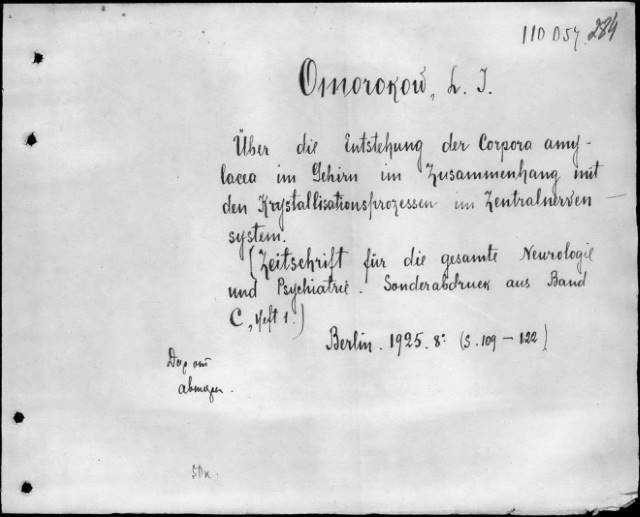 110 057. 284
Omorokow, L. I.
Über die Entstehung der Corpora amy-
lacea im Gehirn im Zusammenhang mit
den Krystallisationsprozessen im Zentralnerven
system.
(Zeitschrift für die gesamte Neurologie
und Psychiatrie. Sonderabdruck aus Band
C, Heft 1.)
Berlin. 1925. 8: (S. 109 - 122)